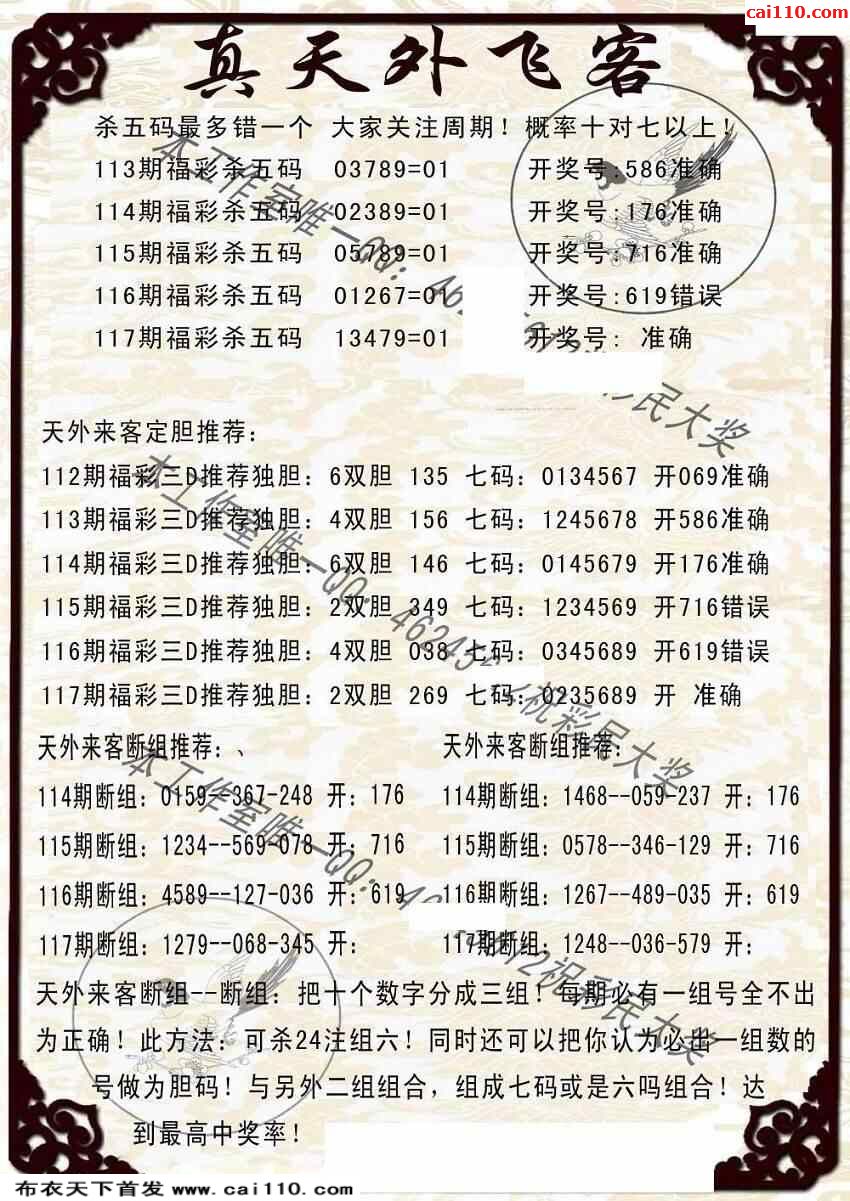 cai110.com
真天外飞客
杀五码最多错一个 大家关注周期！概率十对七以上！
113期福彩杀五码 03789=01 开奖号:586准确
114期福彩杀五码 02389=01 开奖号:176准确
115期福彩杀五码 05789=01 开奖号:716准确
116期福彩杀五码 01267=01 开奖号:619错误
117期福彩杀五码 13479=01 开奖号: 准确
天外来客定胆推荐:
112期福彩三D推荐独胆: 6双胆 135 七码: 0134567 开069准确
113期福彩三D推荐独胆: 4双胆 156 七码: 1245678 开586准确
114期福彩三D推荐独胆: 6双胆 146 七码: 0145679 开176准确
115期福彩三D推荐独胆: 2双胆 349 七码: 1234569 开716错误
116期福彩三D推荐独胆: 4双胆 038 七码: 0345689 开619错误
117期福彩三D推荐独胆: 2双胆 269 七码: 0235689 开 准确
天外来客断组推荐:、 天外来客断组推荐:
114期断组: 0159--367-248 开: 176 114期断组: 1468--059-237 开: 176
115期断组: 1234--569-078 开: 716 115期断组: 0578--346-129 开: 716
116期断组: 4589--127-036 开: 619 116期断组: 1267--489-035 开: 619
117期断组: 1279--068-345 开: 117期断组: 1248--036-579 开:
天外来客断组--断组: 把十个数字分成三组！每期必有一组号全不出
为正确！此方法: 可杀24注组六！同时还可以把你认为必出一组数的
号做为胆码！与另外二组组合，组成七码或是六吗组合！达
到最高中奖率！
布衣天下首发 www.cai110.com